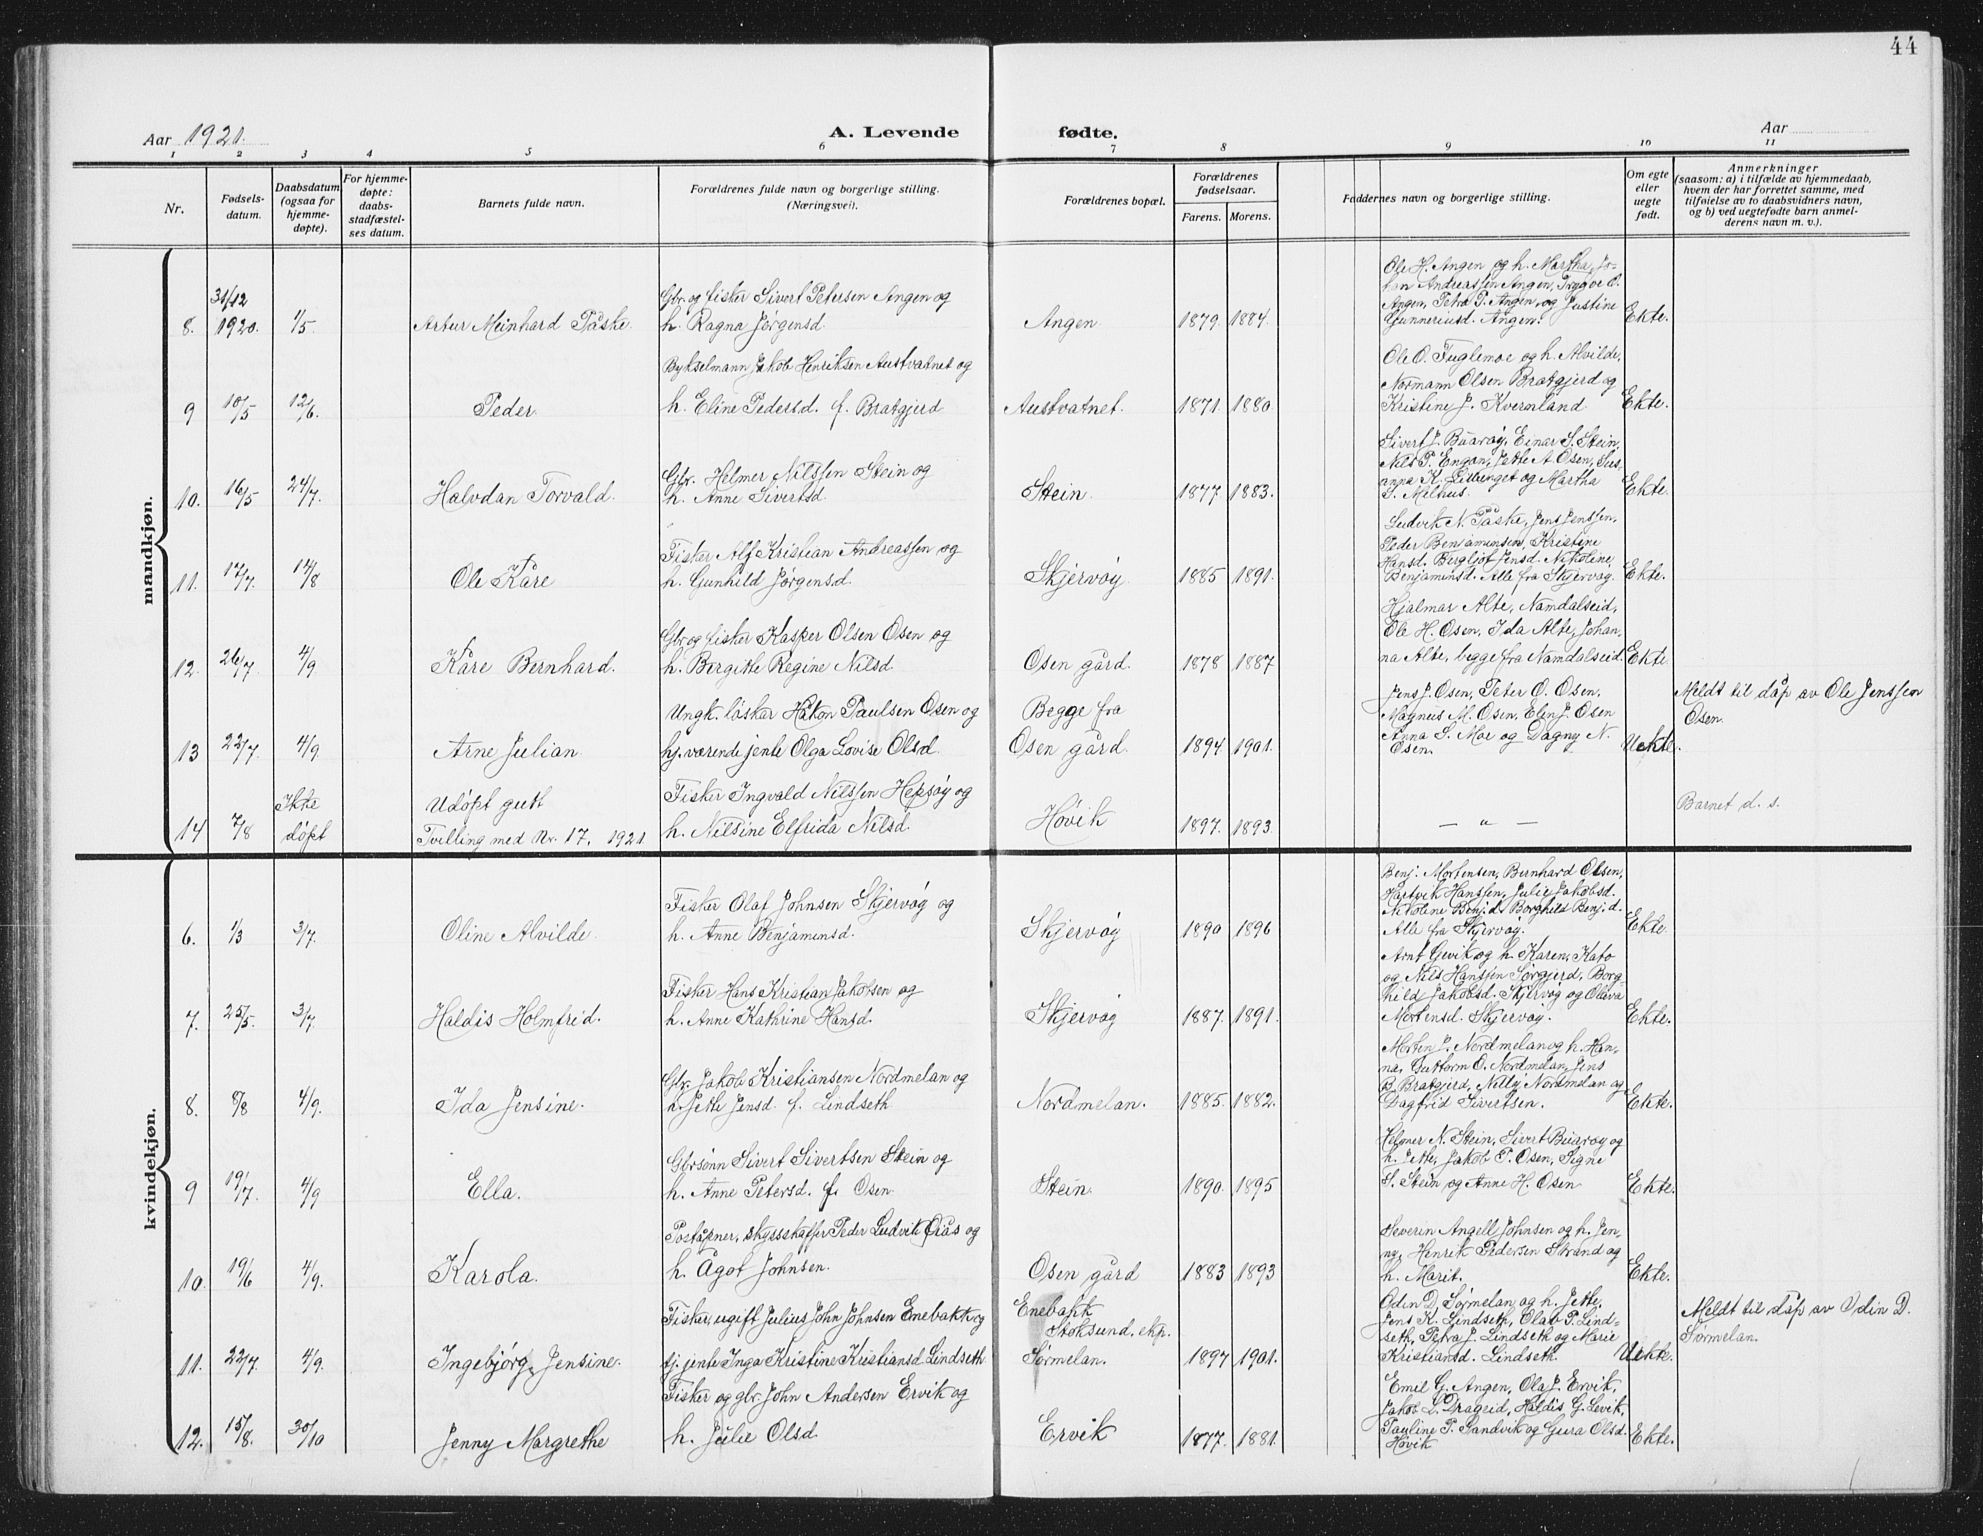 44
Aar 1921.
A. Levende fødte.
Aar
1 2 3 4 5 6 7 8 9 10 11
Nr.
Fødselsdatum.
Daabsdatum (ogsaa for hjemmedøpte).
For hjemmedøpte: daabsstadfæstelses datum.
Barnets fulde navn.
Forældrenes fulde navn og borgerlige stilling. (Næringsvei).
Forældrenes bopæl.
Forældrenes fødselsaar.
Farens. Morens.
Faddernes navn og borgerlige stilling.
Om egte eller uegte født.
Anmerkninger
(saasom: a) i tilfælde av hjemmedaab, hvem der har forrettet samme, med tilføielse av to daabsvidners navn, og b) ved uegtefødte barn anmelderens navn m. v.).
mandkjøn.
8. 31/12 1920. 1/5 Artur Meinhard Påske.
Gbr. og fisker Sivert Petersen Angen og
h. Ragna Jørgensd.
Angen 1879. 1884.
Ole H. Angen og h. Martha, Jo-
han Andreassen Angen, Trygve O.
Angen, Petra P. Angen, og Justine
Gunneriusd. Angen.
Ekte.
9 10/5 12/6. Peder.
Bykselmann Jakob Henriksen Austvatnet og
h. Eline Pedersd. f. Bratgjerd
Austvatnet. 1871. 1880.
Ole O. Fuglemoe og h. Alvilde,
Normann Olsen Bratgjerd og
Kristine J. Kvernland.
Ekte.
10. 16/5 24/7. Halvdan Torvald.
Gbr. Helmer Nilssen Stein og
h. Anne Sivertsd.
Stein. 1877. 1883.
Sivert J. Buarøy, Einar S. Stein,
Nils P. Engan, Jette A. Osen, Sus-
anna K. Lillenget og Martha
S. Melhus.
Ekte.
11. 17/7. 14/8 Ole Kåre
Fisker Alf Kristian Andreassen og
h. Gunhild Jørgensd.
Skjervøy 1885 1891.
Ludvik N. Påske, Jens Jenssen,
Peder Benjaminsen, Kristine
Hansd. Bergljot Jensd. Nikoline
Benjaminsd. Alle fra Skjervøy.
Ekte.
12. 26/7 4/9 Kåre Bernhard.
Gbr. og fisker Kasper Olsen Osen og
h. Bergitte Regine Nilsd.
Osen gård. 1878 1887
Hjalmar Alte, Namdalseid,
Ole H. Osen, Ida Alte, Johan,
na Alte, begge fra Namdalseid.
Ekte.
13 22/7. 4/9. Arne Julian.
Ungk. løskar Håkon Paulsen Osen og
hj. værende jente Olga Lovise Olsd.
Begge fra
Osen gård. 1894 1901.
Jens J. Osen, Peter O. Osen,
Magnus M. Osen, Elen J. Osen
Anna S. Moe og Dagny N.
Osen.
Uekte.
Meldt til dåp av Ole Jenssen
Osen.
14 7/8 Ikke døpt
Udøpt gutt
Tvilling med Nr. 17. 1921.
Fisker Ingvald Nilssen Hepsøy og
h. Nilsine Elfrida Nilsd.
Høvik 1897. 1893.
— " —
Barnet d. s.
kvindekjøn.
6. 1/3 3/7. Oline Alvilde.
Fisker Olaf Johnsen Skjervøy og
h. Anne Benjaminsd.
Skjervøy 1890 1896
Benj. Mortensen, Bernhard Olsen,
Hartvik Hanssen, Julie Jakobsd.
Nikoline Benj.d. Borghild Benj.d.
Alle fra Skjervøy.
Ekte
7. 25/5. 3/7. Haldis Holmfrid.
Fisker Hans Kristian Jakobsen og
h. Anne Kathrine Hansd.
Skjervøy 1887. 1891.
Arnt Gevik og h. Karen, Kato
og Nils Hanssen Sørgjerd, Borg-
hild Jakobsd. Skjervøy og Olava
Mortensd. Skjervøy.
Ekte.
8. 8/8 4/9. Ida Jensine.
Gbr. Jakob Kristiansen Nordmelan og
h. Jette Jensd. f. Lindseth
Nordmelan. 1885. 1882.
Morten J. Nordmelan og h. Han-
na, Guttorm O. Nordmelan, Jens
B. Bratgjerd, Nelly Nordmelan og
Dagfrid Sivertsen.
Ekte.
9 19/7. 4/9 Ella.
Gbrsønn Sivert Sivertsen Stein og
h. Anne Petersd. f. Osen.
Stein. 1890. 1895
Helmer N. Stein, Sivert Buarøy og
h. Jette, Jakob P. Osen, Signe
S. Stein og Anne H. Osen
Ekte.
10. 19/6 4/9. Karola.
Poståpner, skyssskaffer Peder Ludvik Ciås og
h. Ågot Johnsen.
Osen gård 1883 1893
Severin Angell Johnsen og h. Jen-
ny, Henrik Pedersen Strand og
h. Marit.
Ekte.
11. 22/7. 4/9. Ingebjørg Jensine.
Fisker, ugift Julius John Johnsen Enebakk og
tj. jente Inga Kristine Kristiansd. Lindseth
Enebakk
Stoksund. ekp.
Sørmelan. 1897 1901.
Odin D. Sørmelan og h. Jette,
Jens K. Lindseth, Olav P. Lind-
seth, Petra J. Lindseth og Marie
Kristiansd. Lindseth.
Uekte.
Meldt til dåp av Odin D.
Sørmelan.
12. 15/8. 30/10 Jenny Margrethe
Fisker og gbr. John Andersen Ervik og
h. Julie Olsd.
Ervik 1877. 1881.
Emil G. Angen, Ola J. Ervik,
Jakob L. Drageid, Haldis G. Levik,
Pauline P. Sandvik og Gura Olsd.
Høvik
Ekte.